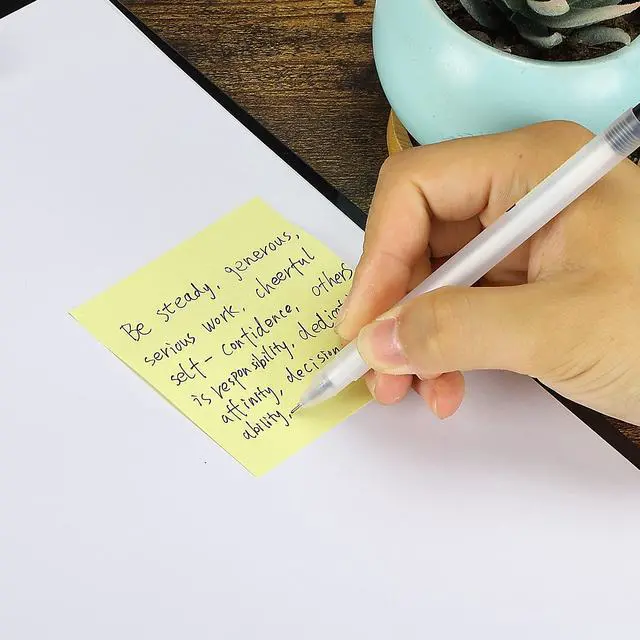 Be steady, generous,
serious work, cheerful
self-confidence, others
is responsibility,
affinity, decision
ability.